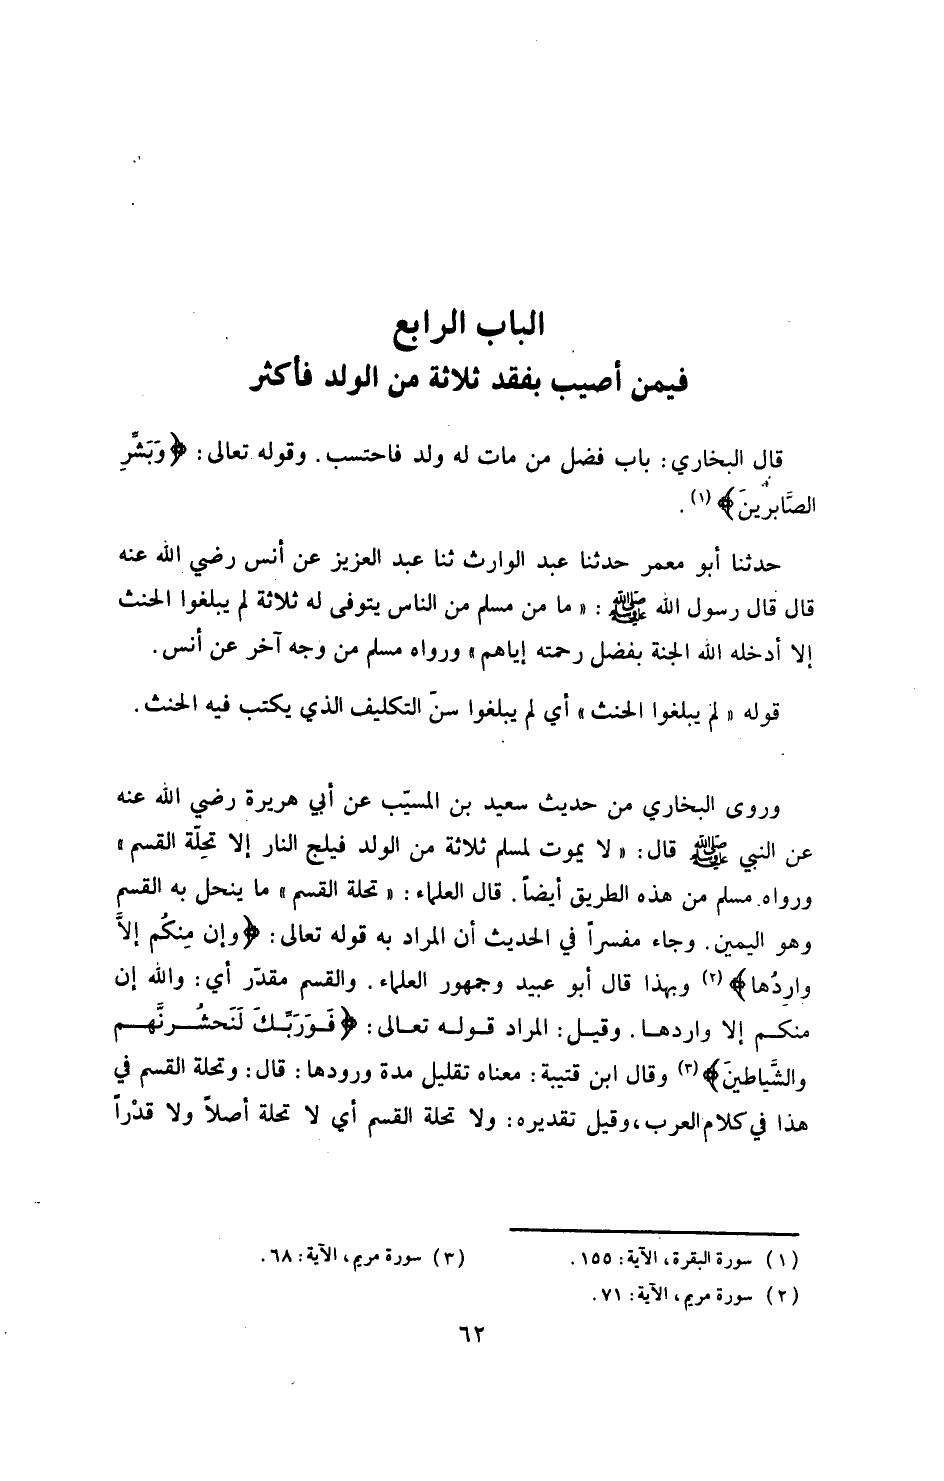 الباب الرابع
فيمن أصيب بفقد ثلاثة من الولد فأكثر
قال البخاري: باب فضل من مات له ولد فاحتسب. وقوله تعالى: ﴿وَبَشِّرِ
الصَّابِرِينَ﴾ (١).
حدثنا أبو معمر حدثنا عبد الوارث ثنا عبد العزيز عن أنس رضي الله عنه
قال قال رسول الله ﷺ: « ما من مسلم من الناس يتوفى له ثلاثة لم يبلغوا الحنث
إلا أدخله الله الجنة بفضل رحمته إياهم » ورواه مسلم من وجه آخر عن أنس.
قوله « لم يبلغوا الحنث » أي لم يبلغوا سنّ التكليف الذي يكتب فيه الحنث.
وروى البخاري من حديث سعيد بن المسيّب عن أبي هريرة رضي الله عنه
عن النبي ﷺ قال: « لا يموت لمسلم ثلاثة من الولد فيلج النار إلا تحِلّة القسم »
ورواه مسلم من هذه الطريق أيضاً. قال العلماء: « تحلة القسم » ما ينحل به القسم
وهو اليمين. وجاء مفسراً في الحديث أن المراد به قوله تعالى: ﴿وإن مِنكُم إلاَّ
وارِدُها﴾ (٢) وبهذا قال أبو عبيد وجمهور العلماء. والقسم مقدّر أي: والله إن
منكم إلا واردها. وقيل: المراد قوله تعالى: ﴿فَوَرَبِّكَ لَنَحشُرنَّهم
والشَّياطينَ﴾ (٣) وقال ابن قتيبة: معناه تقليل مدة ورودها: قال: وتحلة القسم في
هذا في كلام العرب، وقيل تقديره: ولا تحلة القسم أي لا تحلة أصلاً ولا قدْراً
(١) سورة البقرة، الآية: ١٥٥.
(٣) سورة مريم، الآية: ٦٨.
(٢) سورة مريم، الآية: ٧١.
٦٢